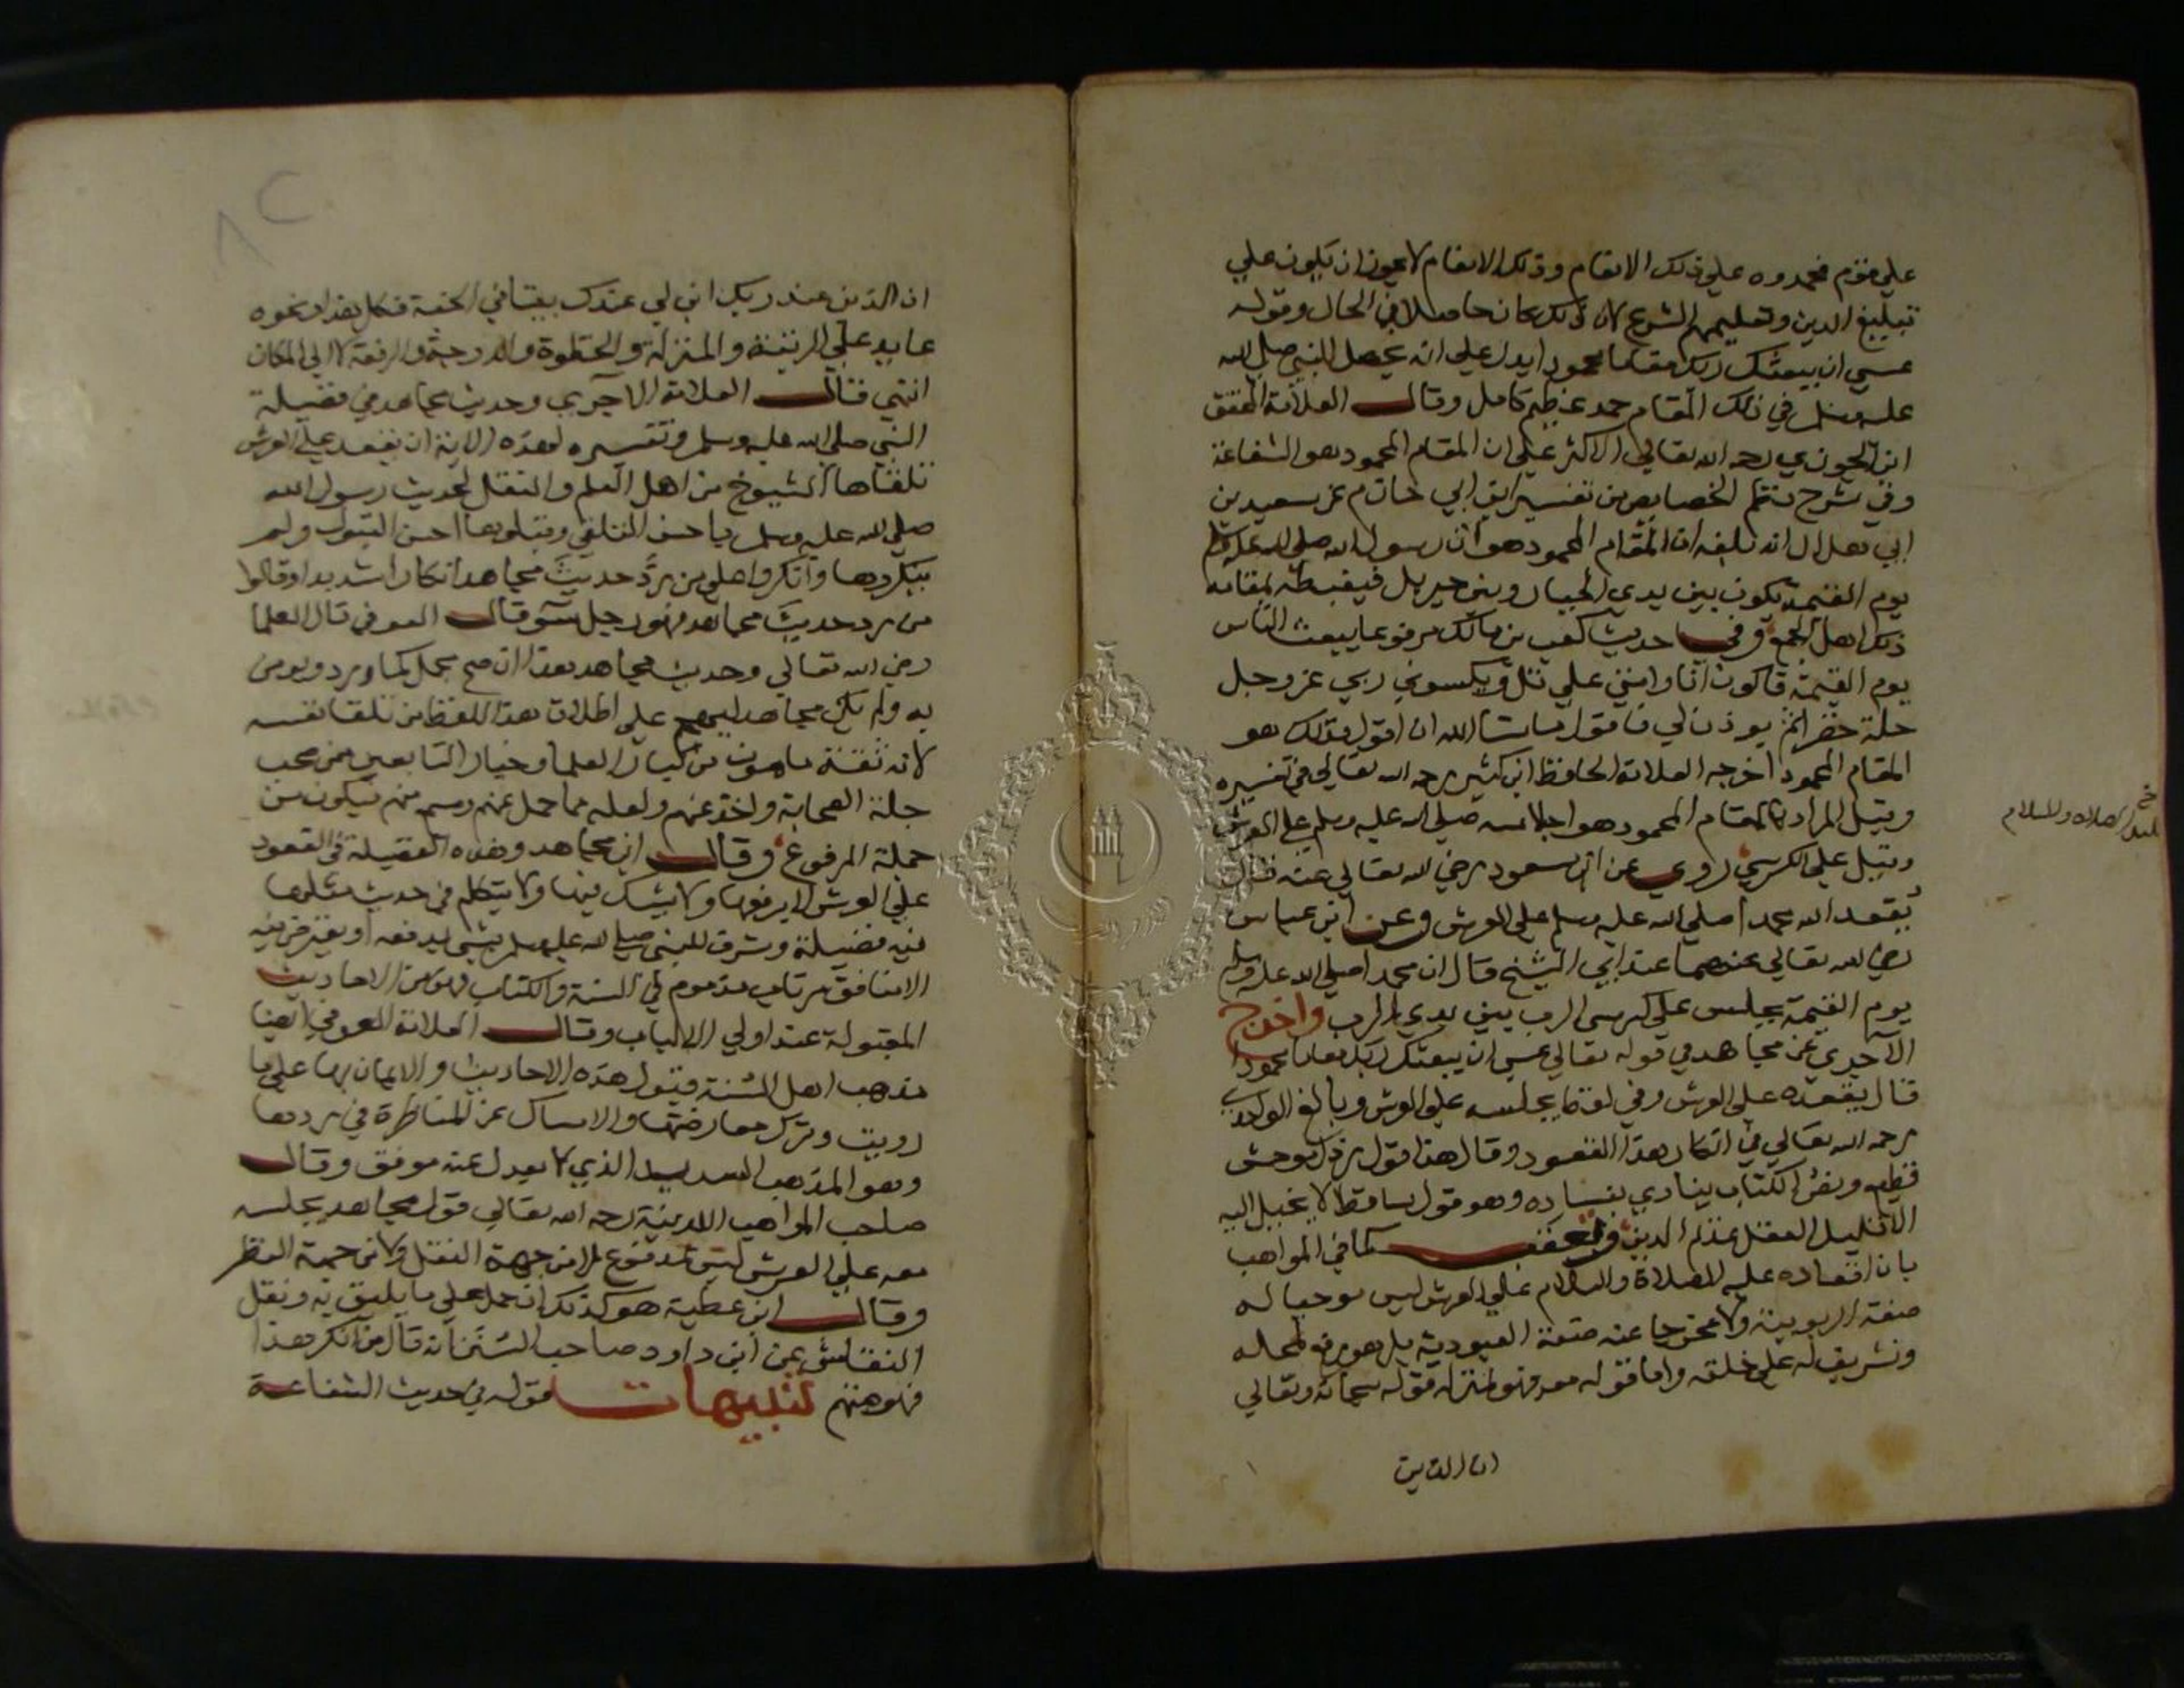 علي قوم فحمدوه علي ذلك الانعام وذلك الانعام لا يجوز ان يكون علي
تبليغ الدين وتعليمهم الشرع لان ذلك كان حاصلا في الحال وقوله
عسي ان يبعثك ربك مقاما محمودا يدل علي انه يحصل للنبي صلي الله
عليه وسلم في ذلك المقام حمد عظيم كامل وقال العلامة المحقق
ابن الجوزي رحمه الله تعالي الاكثر علي ان المقام المحمود هو الشفاعة
وفي شرح نظم الخصايص من تفسير ابن ابي حاتم عن سعيد بن
ابي هلال انه بلغه ان المقام المحمود هو ان رسول الله صلي الله عليه وسلم
يوم القيمة يكون بين يدي الجبار وبين جبريل فيغبطه بمقامه
ذلك اهل الجمع وفي حديث كعب بن مالك مرفوعا يبعث الناس
يوم القيمة فاكون انا وامتي علي تل ويكسوني ربي عز وجل
حلة خضرا ثم يوذن لي فاقول ما شا الله ان اقول فذلك هو
المقام المحمود اخرجه العلامة الحافظ ابن كثير رحمه الله تعالي في تفسيره
وقيل المراد بالمقام المحمود هو اجلاسه صلي الله عليه وسلم علي العرش
وقيل علي الكرسي روي عن ابن مسعود رضي الله تعالي عنه قال
يقعد الله محمدا صلي الله عليه وسلم علي العرش وعن ابن عباس
رضي الله تعالي عنهما عند ابي الشيخ قال ان محمدا صلي الله عليه وسلم
يوم القيمة يجلس علي كرسي الرب بين يدي الرب واخرج
الآجري عن مجاهد في قوله تعالي عسي ان يبعثك ربك مقاما محمودا
قال يقعده علي العرش وفي لفظ يجلسه علي العرش وبالغ الواحدي
رحمه الله تعالي في انكار هذا القعود وقال هذا قول رذل موحش
فظيع ونص الكتاب ينادي بفساده وهو قول ساقط لا يميل اليه
الا قليل العقل عديم الدين وتعقب كما في المواهب
بان اقعاده عليه الصلاة والسلام علي العرش ليس موجبا له
صفة الربوبية ولا مخرجا عنه صفة العبودية بل هو رفع لمحله
وتشريف له علي خلقه واما قوله معه فهو بمنزلة قوله سبحانه وتعالي
ان الذين
عليه الصلاه والسلام
٨٢
ان الذين عند ربك ابن لي عندك بيتا في الجنة فكل هذا ونحوه
عايد علي الرتبة والمنزلة والحظوة والدرجة والرفعة لا الي المكان
انتهي قال العلامة الآجري وحديث مجاهد في فضيلة
النبي صلي الله عليه وسلم وتفسيره لهذه الاية ان يقعد علي العرش
تلقاها الشيوخ من اهل العلم والنقل لحديث رسول الله
صلي الله عليه وسلم باحسن التلقي وقبلوها احسن القبول ولم
ينكروها وانكروا علي من رد حديث مجاهد انكارا شديدا وقالوا
من رد حديث مجاهد فهو رجل سو قال العوفي قال العلما
رضي الله تعالي وحديث مجاهد هذا ان صح يحمل كما ورد ويومن
به ولم يكن مجاهد ليهجم علي اطلاق هذا اللفظ من تلقا نفسه
لانه ثقة مامون من كبار العلما وخيار التابعين ممن صحب
جلة الصحابة واخذ عنهم ولعله مما حمل عنهم وسمع منهم فيكون من
جملة المرفوع وقال ابن مجاهد وهذه الفضيلة في القعود
علي العرش لا يرفعها ولا يشك فيها ولا يتكلم في حديث مثلها
فيه فضيلة وشرف للنبي صلي الله عليه وسلم بشي يدفعه او يغيره فيه
الا منافق مرتاب مذموم في السنة والكتاب وهو من الاحاديث
المقبولة عند اولي الالباب وقال العلامة العوفي ايضا
مذهب اهل السنة قبول هذه الاحاديث والايمان بها علي ما
رويت وترك معارضتها والامساك عن المناظرة في ردها
وهو المذهب السديد الذي لا يعدل عنه موفق وقال
صاحب المواهب اللدنية رحمه الله تعالي قول مجاهد يجلسه
معه علي العرش ليس بمدفوع لا من جهة النقل ولا من جهة النظر
وقال ابن عطية هو كذلك ان حمل علي ما يليق به ونقل
النقاش عن ابن داود صاحب السنن انه قال من انكر هذا
فهو متهم تنبيهات قوله في حديث الشفاعة